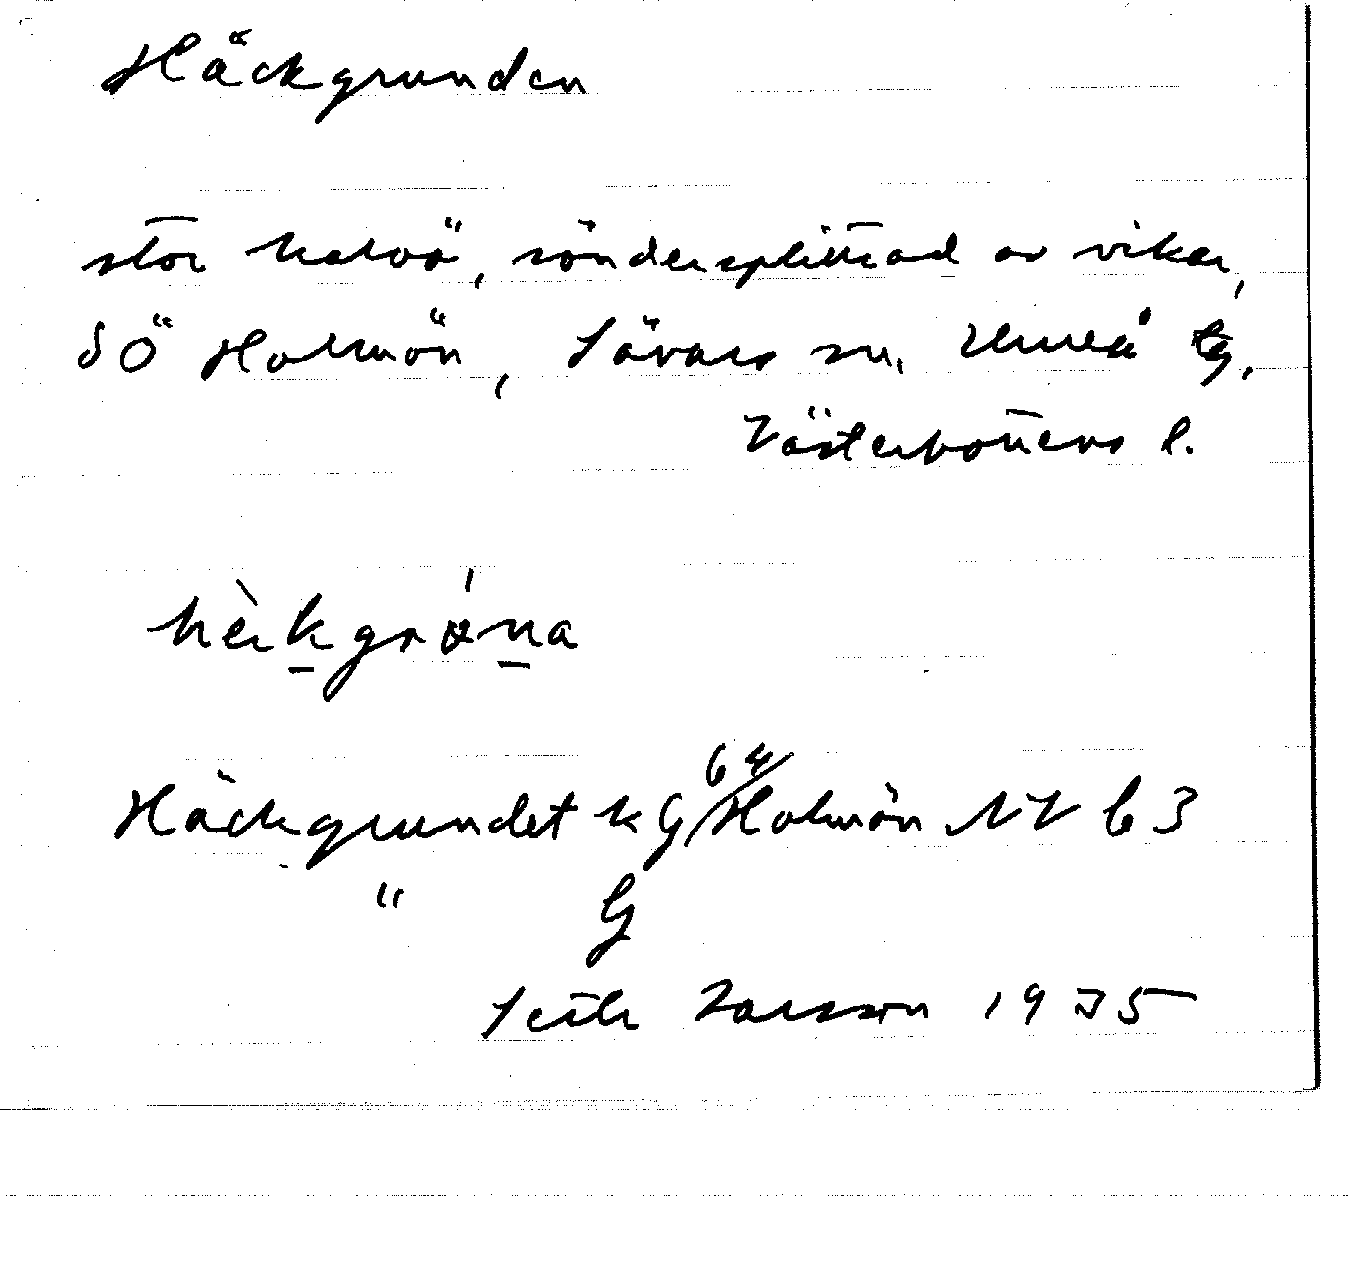 Häckgrunden
stor halvö, söndersplittrad av vikar,
SÖ Holmön, Sävars sn. Umeå tg.
Västerbottens l.
Häckgrundet k G 64/Holmön NV b 3
" G
Seth Larsson 1975